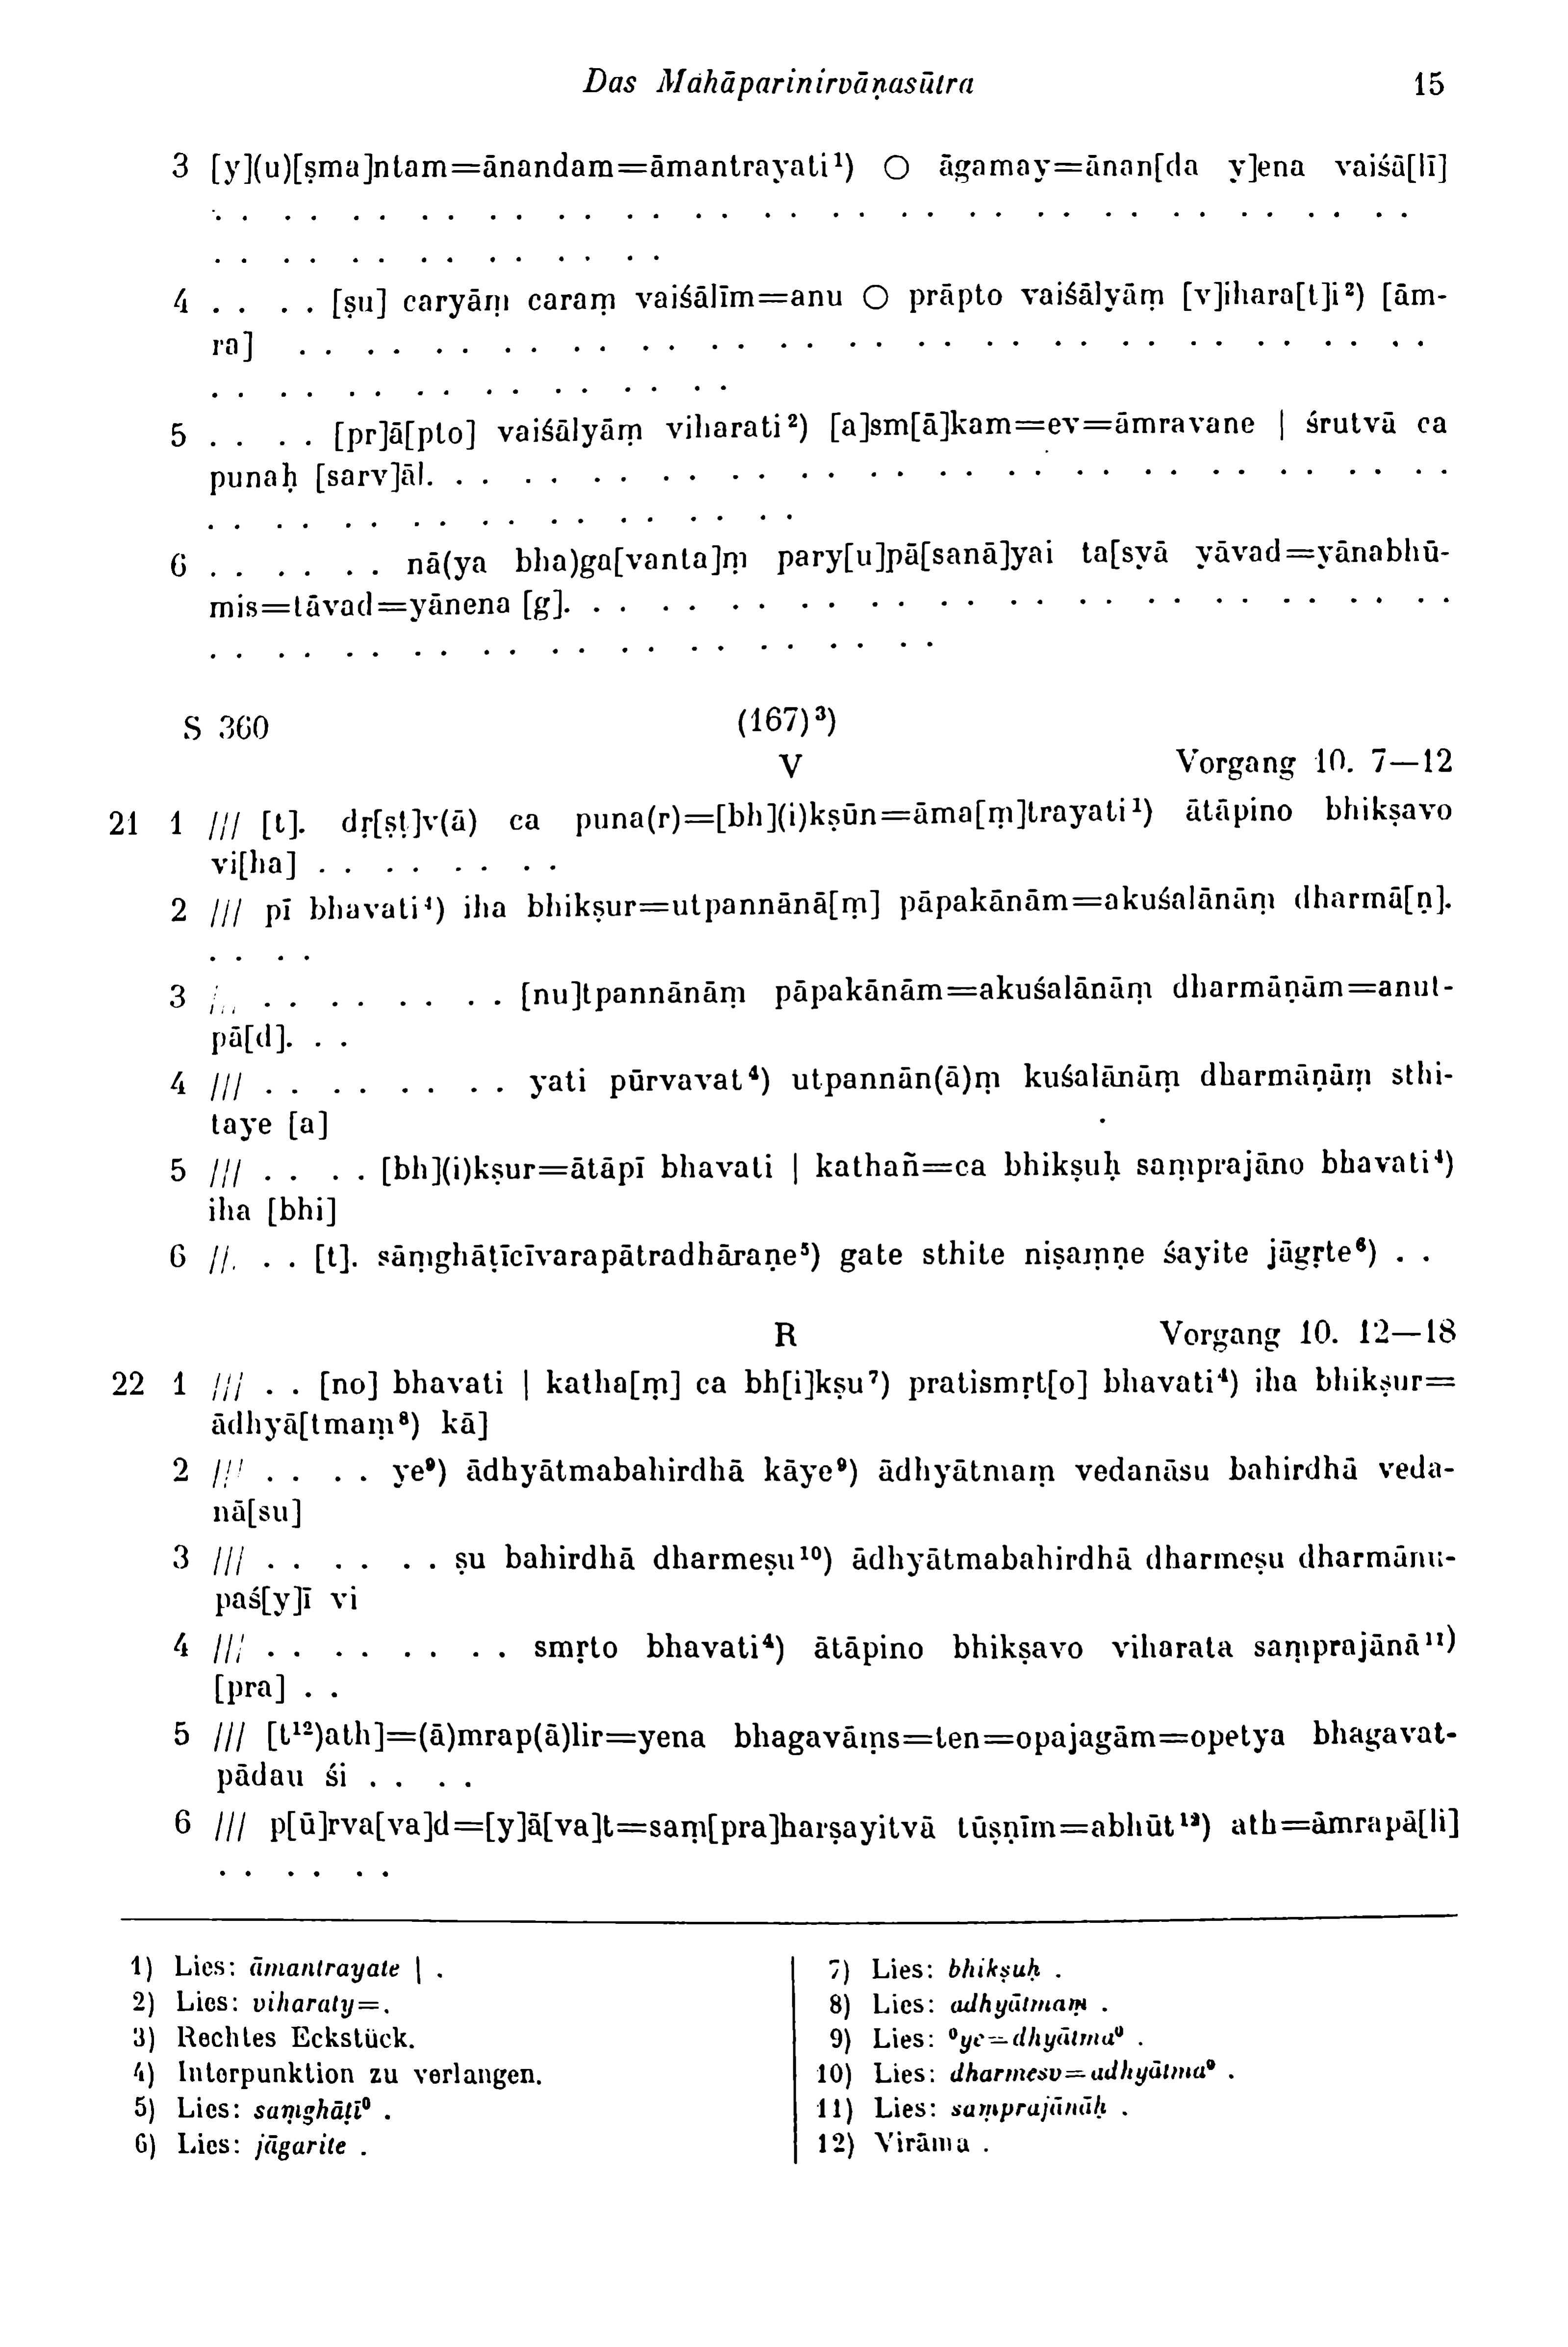 Das Mahāparinirvāṇasūtra 15
3 [y](u)[ṣma]ntam=ānandam=āmantrayati¹) ○ āgamay=ānan[da y]ena vaiśā[lī]
. . . . . . . . . . . . . . . . . . . . . . . . . . . . . . . . . . . .
. . . . . . . . . . . . . .
4 . . . . [ṣu] caryāṃ caraṃ vaiśālīm=anu ○ prāpto vaiśālyāṃ [v]ihara[t]i²) [ām-
ra] . . . . . . . . . . . . . . . . . . . . . . . . . . . . . . . . . .
. . . . . . . . . . . . . . . .
5 . . . . [pr]ā[pto] vaiśālyāṃ viharati²) [a]sm[ā]kam=ev=āmravane | śrutvā ca
punaḥ [sarv]āl. . . . . . . . . . . . . . . . . . . . . . . . . . . . . .
. . . . . . . . . . . . . . . . . .
6 . . . . . . nā(ya bha)ga[vanta]ṃ pary[u]pā[sanā]yai ta[syā yāvad=yānabhū-
mis=tāvad=yānena [g]. . . . . . . . . . . . . . . . . . . . . . . . . . .
. . . . . . . . . . . . . . . . . . . . . .
S 360 (167)³)
V Vorgang 10. 7—12
21 1 /// [t]. dṛ[ṣṭ]v(ā) ca puna(r)=[bh](i)kṣūn=āma[ṃ]trayati¹) ātāpino bhikṣavo
vi[ha] . . . . . . . .
2 /// pī bhavati⁴) iha bhikṣur=utpannānā[ṃ] pāpakānām=akuśalānāṃ dharmā[ṇ].
. . . .
3 /// . . . . . . . . [nu]tpannānāṃ pāpakānām=akuśalānāṃ dharmāṇām=anut-
pā[d]. . .
4 /// . . . . . . . . yati pūrvavat⁴) utpannān(ā)ṃ kuśalānāṃ dharmāṇāṃ sthi-
taye [a]
5 /// . . . . [bh](i)kṣur=ātāpī bhavati | kathañ=ca bhikṣuḥ saṃprajāno bhavati⁴)
iha [bhi]
6 //. . . [t]. sāṃghāṭīcīvarapātradhāraṇe⁵) gate sthite niṣaṃṇe śayite jāgṛte⁶) . .
R Vorgang 10. 12—18
22 1 /// . . [no] bhavati | katha[ṃ] ca bh[i]kṣu⁷) pratismṛt[o] bhavati⁴) iha bhikṣur=
ādhyā[tmaṃ⁸) kā]
2 /// . . . . ye⁹) ādhyātmabahirdhā kāye⁹) ādhyātmaṃ vedanāsu bahirdhā veda-
nā[su]
3 /// . . . . . . ṣu bahirdhā dharmeṣu¹⁰) ādhyātmabahirdhā dharmeṣu dharmānu-
paś[y]ī vi
4 /// . . . . . . . . smṛto bhavati⁴) ātāpino bhikṣavo viharata saṃprajānā¹¹)
[pra] . .
5 /// [t¹²)ath]=(ā)mrap(ā)lir=yena bhagavāṃs=ten=opajagām=opetya bhagavat-
pādau śi . . . .
6 /// p[ū]rva[va]d=[y]ā[va]t=saṃ[pra]harṣayitvā tūṣṇīm=abhūt¹²) ath=āmrapā[li]
. . . . . .
1) Lies: āmantrayate | .
2) Lies: viharaty=.
3) Rechtes Eckstück.
4) Interpunktion zu verlangen.
5) Lies: saṃghāṭī⁰ .
6) Lies: jāgarite .
7) Lies: bhikṣuḥ .
8) Lies: adhyātmaṃ .
9) Lies: ⁰ye=dhyātma⁰ .
10) Lies: dharmesv=adhyātma⁰ .
11) Lies: saṃprajānāḥ .
12) Virāma .